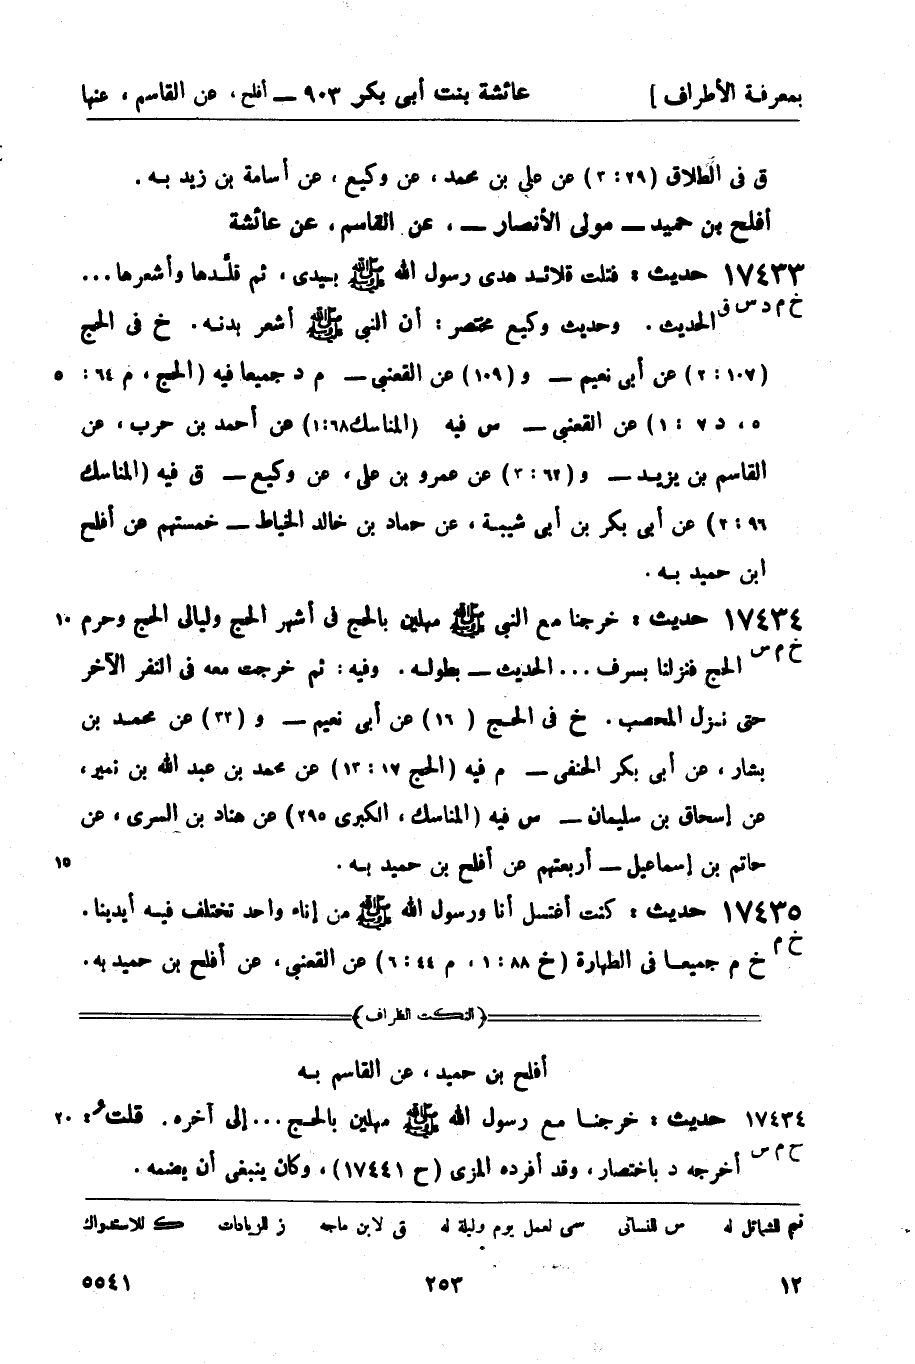 بمعرفة الأطراف ] عائشة بنت أبى بكر ٩٠٣ ــ أفلح، عن القاسم ، عنها
ق فى الطلاق (٢٩ : ٣) عن على بن محمد ، عن وكيع ، عن أسامة بن زيد به .
أفلح بن حميد ــ مولى الأنصار ــ ، عن القاسم ، عن عائشة
١٧٤٣٣ حديث : فتلت قلائد هدى رسول الله ﷺ بيدى ، ثم قلَّدها وأشعرها ...
خ م د س ق الحديث . وحديث وكيع مختصر : أن النبى ﷺ أشعر بدنه . خ فى الحج
(١٠٧ : ٢) عن أبى نعيم ــ و (١٠٩) عن القعنبى ــ م د جميعا فيه (الحج ، م ٦٤ : ٥
٥ ، د ١٧ : ١) عن القعنبى ــ س فيه (المناسك ٦٨ : ١) عن أحمد بن حرب ، عن
القاسم بن يزيد ــ و (٦٢ : ٣) عن عمرو بن على ، عن وكيع ــ ق فيه (المناسك
٩٦ : ٢) عن أبى بكر بن أبى شيبة ، عن حماد بن خالد الخياط ــ خمستهم عن أفلح
ابن حميد به .
١٧٤٣٤ حديث : خرجنا مع النبى ﷺ مهلين بالحج فى أشهر الحج وليالى الحج وحرم ١٠
خ م س الحج فنزلنا بسرف ... الحديث ــ بطوله . وفيه : ثم خرجت معه فى النفر الآخر
حتى نزل المحصب . خ فى الحج ( ١٦) عن أبى نعيم ــ و (٣٣) عن محمد بن
بشار ، عن أبى بكر الحنفى ــ م فيه (الحج ١٧ : ١٣) عن محمد بن عبد الله بن نمير ،
عن إسحاق بن سليمان ــ س فيه (المناسك ، الكبرى ٢٩٥) عن هناد بن السرى ، عن
حاتم بن إسماعيل ــ أربعتهم عن أفلح بن حميد به . ١٥
١٧٤٣٥ حديث : كنت أغتسل أنا ورسول الله ﷺ من إناء واحد تختلف فيه أيدينا .
خ م خ م جميعا فى الطهارة (خ ٨٨ : ١ ، م ٤٤ : ٦) عن القعنبى ، عن أفلح بن حميد به .
(النكت الظراف)
أفلح بن حميد ، عن القاسم به
١٧٤٣٤ حديث : خرجنا مع رسول الله ﷺ مهلين بالحج ... إلى آخره . قلتُ : ٢٠
خ م س أخرجه د باختصار ، وقد أفرده المزى (ح ١٧٤٤١) ، وكان ينبغى أن يضمه .
تم للشمائل له س للنسائى سى لعمل يوم وليلة له ق لابن ماجه ز للزيادات ك للاستدراك
١٢ ٢٥٣ ٥٥٤١